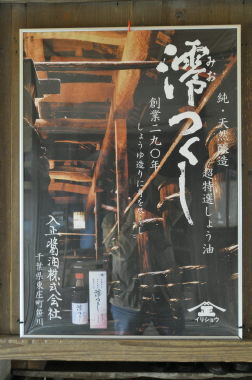 純・天然醸造
超特選しょう油
みお
澪つくし
創業二九〇年
しょうゆ造りに
入正醤油株式会社
千葉県東庄町笹川
イリショウ
澪つくし